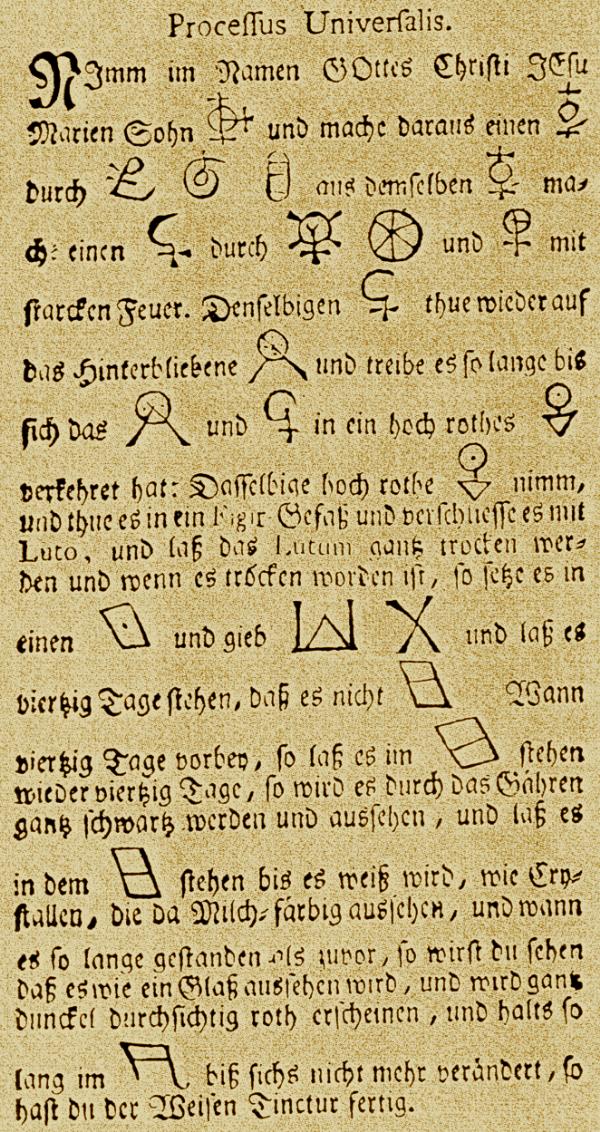 Processus Universalis.
NImm im Namen GOttes Christi JEsu
Marien Sohn und mache daraus einen
durch aus demselben ma-
che einen durch und mit
starcken Feuer. Denselbigen thue wieder auf
das Hinterbliebene und treibe es so lange bis
sich das und in ein hoch rothes
verkehret hat: Dasselbige hoch rothe nimm,
und thue es in ein Figir-Gefäß und verschliesse es mit
Luto, und laß das Lutum gantz trocken wer-
den und wenn es tröcken worden ist, so setze es in
einen und gieb und laß es
viertzig Tage stehen, daß es nicht Wann
viertzig Tage vorbey, so laß es im stehen
wieder viertzig Tage, so wird es durch das Gähren
gantz schwartz werden und aussehen, und laß es
in dem stehen bis es weiß wird, wie Cry-
stallen, die da Milch-färbig aussehen, und wann
es so lange gestanden als zuvor, so wirst du sehen
daß es wie ein Glaß aussehen wird, und wird gantz
dunckel durchsichtig roth erscheinen, und halts so
lang im biß sichs nicht mehr verändert, so
hast du der Weisen Tinctur fertig.